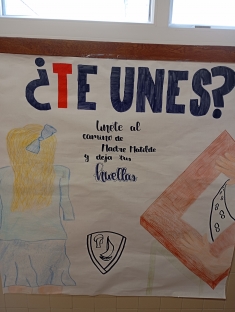 ¿TE UNES?
Únete al
camino de
Madre Matilde
y deja tus
huellas